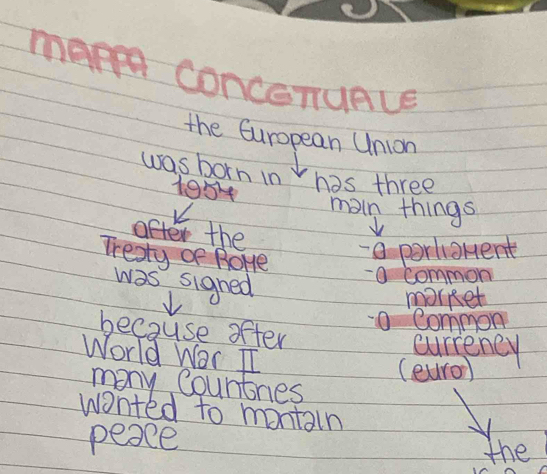 MAPPA CONCETTUALE
the European Union
was born in
after the
Treaty of ROME
was signed
because after
World War II
many Countries
wanted to mantain
peace
has three
main things
-a parliaMent
-a common
market
-a common
currency
(euro)
the